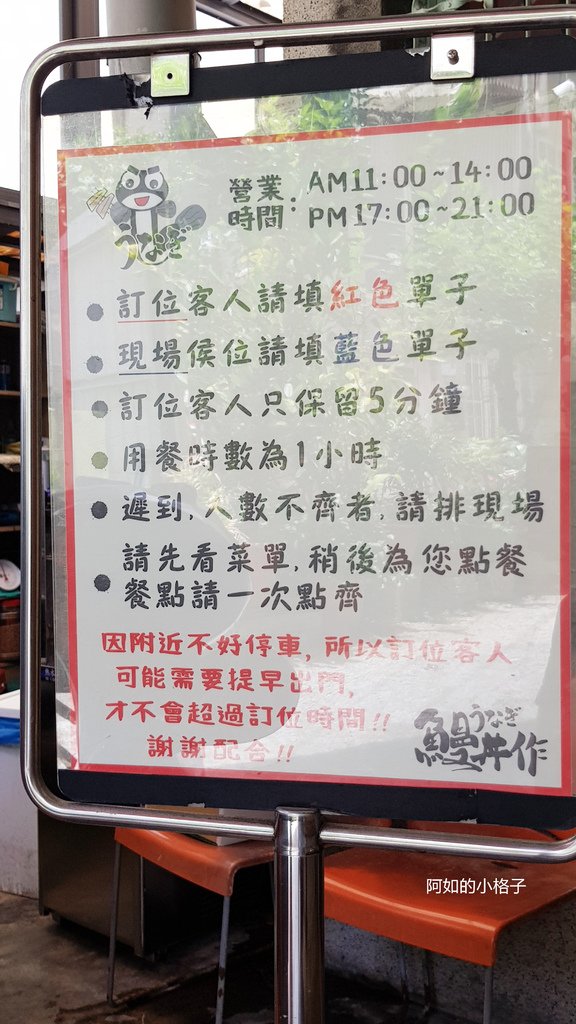 營業時間：
AM11:00~14:00
PM17:00~21:00
うなぎ
訂位客人請填紅色單子
現場侯位請填藍色單子
訂位客人只保留5分鐘
用餐時數為1小時
遲到,人數不齊者,請排現場
請先看菜單,稍後為您點餐
餐點請一次點齊
因附近不好停車,所以訂位客人
可能需要提早出門,
才不會超過訂位時間!!
謝謝配合!!
うなぎ
鰻丼作
阿如的小格子